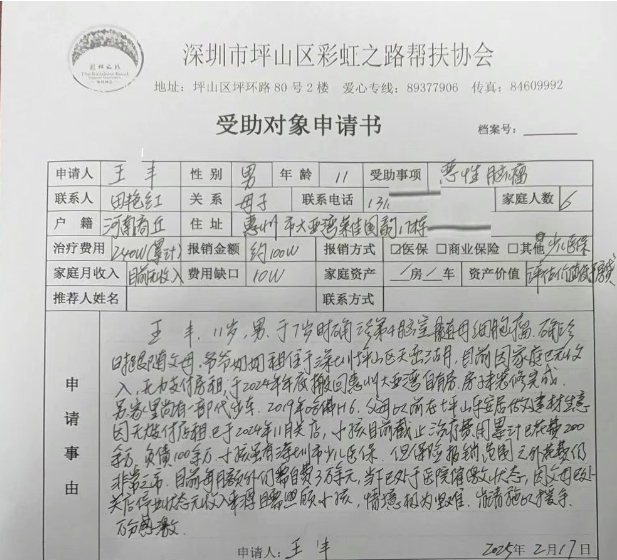 彩虹之路
The Rainbow Road
深圳市坪山区彩虹之路帮扶协会
地址：坪山区坪环路80号2楼 爱心专线：89377906 传真：84609992
受助对象申请书
档案号：
申请人 王丰 性别 男 年龄 11 受助事项 恶性脑瘤
联系人 田艳红 关系 母子 联系电话 131 家庭人数 6
户籍 河南商丘 住址 惠州市大亚湾 门栋
治疗费用 240W(累计) 报销金额 约100W 报销方式 □医保 □商业保险 □其他 少儿医保
家庭月收入 目前无收入 费用缺口 10W 家庭资产 1房1车 资产价值
推荐人姓名 联系方式
申请事由
王丰，11岁，男，于7岁时确诊第4脑室髓母细胞瘤，确诊
父母、爷爷奶奶租住于深圳坪山区 ，目前因家庭无收
入，无力支付房租，于2024年年底搬回惠州大亚湾自有房，
另家里尚有一部代步车，2019年哈佛H6，父母以前在坪山 建材生意
因无法支付店租，已于2024年11月关店，小孩目前截止治疗费用累计已花费200
多万，负债100多万，小孩享有深圳市少儿医保，但保险报销范围之外花费仍
非常之高，目前每月额外仍需自费3万多元，当下已处于医院催缴状态，因父母已处
关店停业状态无收入来源且需照顾小孩，情况极为艰难，
万分感激
申请人：王丰 2025年2月17日